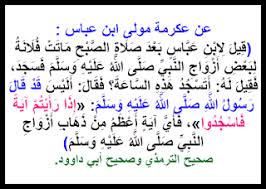 عن عكرمة مولى ابن عباس :
(قِيلَ لابْنِ عَبَّاسٍ بَعْدَ صَلَاةِ الصُّبْحِ مَاتَتْ فُلَانَةُ
لِبَعْضِ أَزْوَاجِ النَّبِيِّ صَلَّى اللَّهُ عَلَيْهِ وَسَلَّمَ فَسَجَدَ،
فَقِيلَ لَهُ: أَتَسْجُدُ هَذِهِ السَّاعَةَ؟ فَقَالَ: أَلَيْسَ قَدْ قَالَ
رَسُولُ اللَّهِ صَلَّى اللَّهُ عَلَيْهِ وَسَلَّمَ: «إِذَا رَأَيْتُمْ آيَةً
فَاسْجُدُوا»، فَأَيُّ آيَةٍ أَعْظَمُ مِنْ ذَهَابِ أَزْوَاجِ
النَّبِيِّ صَلَّى اللَّهُ عَلَيْهِ وَسَلَّمَ)
صحيح الترمذي وصحيح أبي داوود.